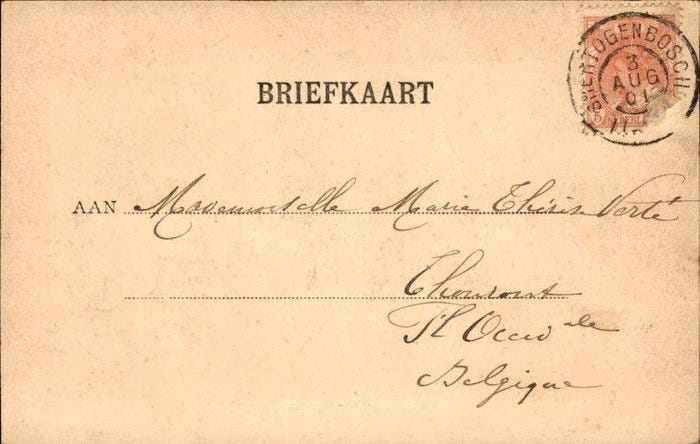 BRIEFKAART
'S HERTOGENBOSCH
3
AUG
01
AAN Mademoiselle Marie Thérèse Verté
Thourout
Fl Occid ale
Belgique